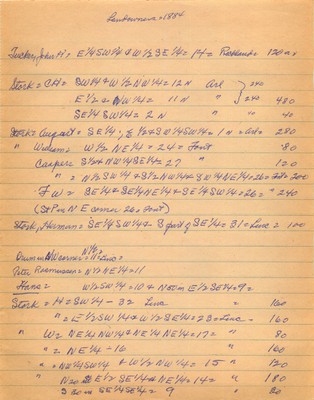 Landowners = 1884
Tucker, John H = E¼SW¼ & W½SE¼ = 14 = Richland = 120 ac
Stock = CH = SW¼ & W½ NW¼ = 12 N Arl } 240
E½ & NW¼ = 11 N " } 240 480
SE¼ SW¼ = 2 N " " 40
Stock = August = SE¼, & E½ & SW¼SW¼ = 1 N = Arl = 280
" William = W½ NE¼ = 24 = Font 80
Casper S½ & NW¼SE¼ = 27 " 120
" = N½ SW¼ & S½NW¼ & SW¼NE¼ = 26 = = 200
F W = SE¼ & SE¼NE¼ & SE¼SW¼ = 26 = " 240
(St P on N E corner 26 = Font)
Stock, Herman = SE¼SW¼ & S part of SE¼ = 31 = Linc = 100
N½
NW corner = 11 = Linc =
Peter Rasmussen = N½ NE¼ = 11
Hans = W½SW¼ = 10 & E½SE¼ = 9 =
Stock = H = SW¼ - 32 Linc " 160
" = E½ SW¼ & W½ SE¼ = 23 = Linc - 160
" W = NE¼NW¼ & NE¼NE¼ = 17 = " 80
" = NE¼ - 16 " 160
" = NE¼SW¼ & W½ NW¼ = 15 " 120
" E½ SE¼ & NE¼ = 14 = " 180
" SE¼SE¼ = 9 " 20